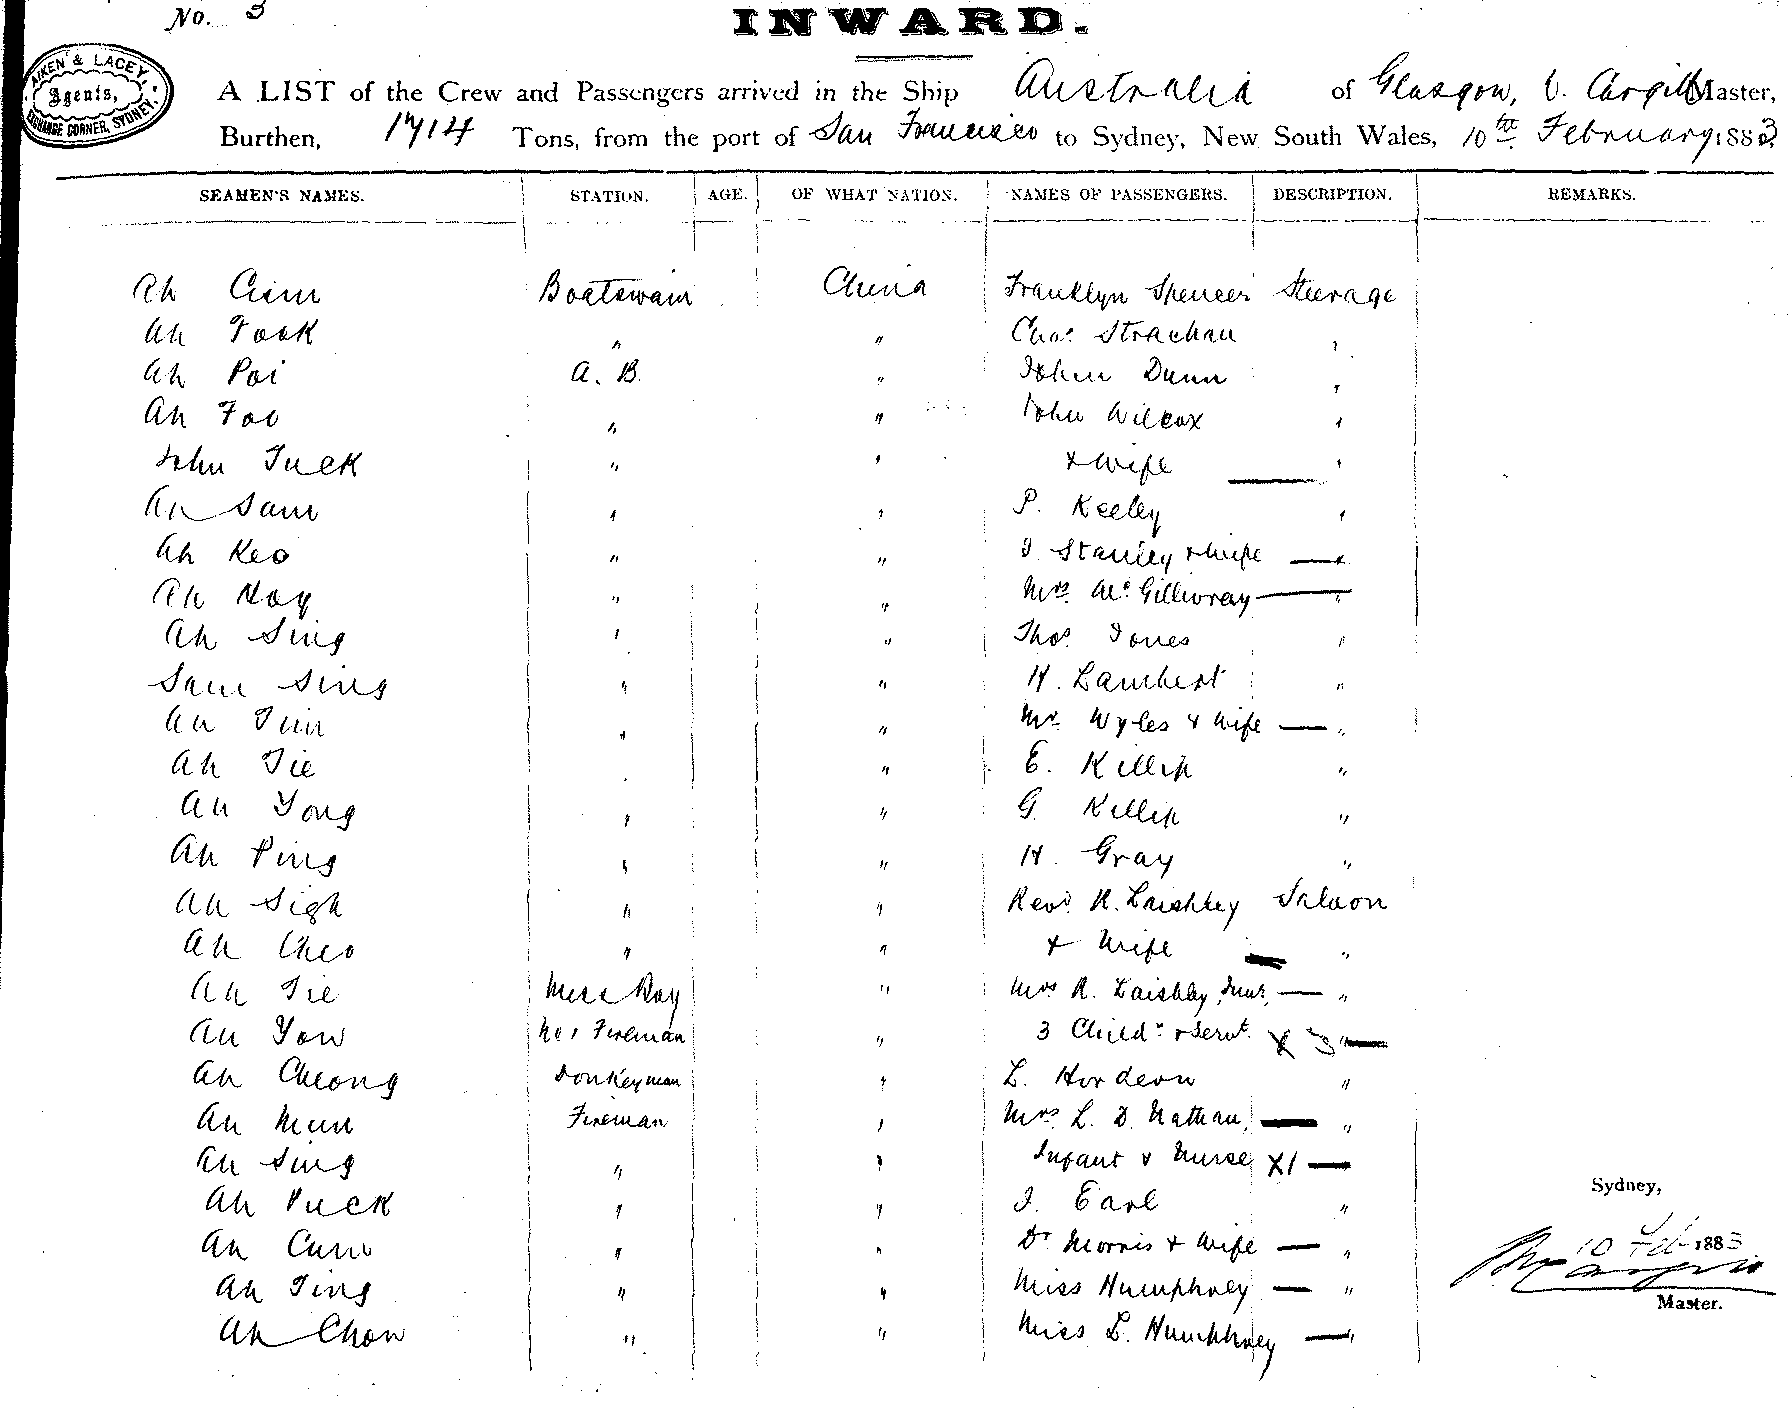 No. 3
INWARD.
AIKEN & LACEY,
Agents,
EXCHANGE CORNER, SYDNEY.
A LIST of the Crew and Passengers arrived in the Ship Australia of Glasgow, Cargill Master,
Burthen, 1714 Tons, from the port of San Francisco to Sydney, New South Wales, 10th February 1883
SEAMEN'S NAMES. STATION. AGE. OF WHAT NATION. NAMES OF PASSENGERS. DESCRIPTION. REMARKS.
Ah Boatswain China Franklyn Spencer Steerage
Ah Fook " " Chas. Strachan "
Ah Poi A. B. " John Dunn "
Ah Foo " " John Wilcox "
John Tuck " " & Wife "
Ah Sam " " P. Keeley "
Ah Keo " " J Stanley & Wife "
Ah Hoy " " Mrs. McGillivray "
Ah Sing " " Thos. Jones "
Sam Sing " " H. Lambert "
Ah " " Mr. Wyles & Wife "
Ah Tie " " E. Killip "
Ah Yong " " G. Killip "
Ah Ping " " H. Gray "
Ah Sigh " " Revd. R. Laishley Saloon
Ah Cheo " " & Wife "
Ah Tie Mess Boy " Mrs R. Laishley, Junr, "
Ah Yow No 1 Fireman " 3 Childn & Servt. X 3 "
Ah Cheong Donkeyman " L. Hordern "
Ah Mun Fireman " Mrs. L. D. Nathan, "
Ah Sing " " Infant & Nurse X1
Ah Puck " " J. Earl "
Ah Cum " " Dr Morris & Wife "
Ah Ting " " Miss Humphrey "
Ah Chow " " Miss L. Humphrey "
Sydney,
10 Feb 1883
Master.